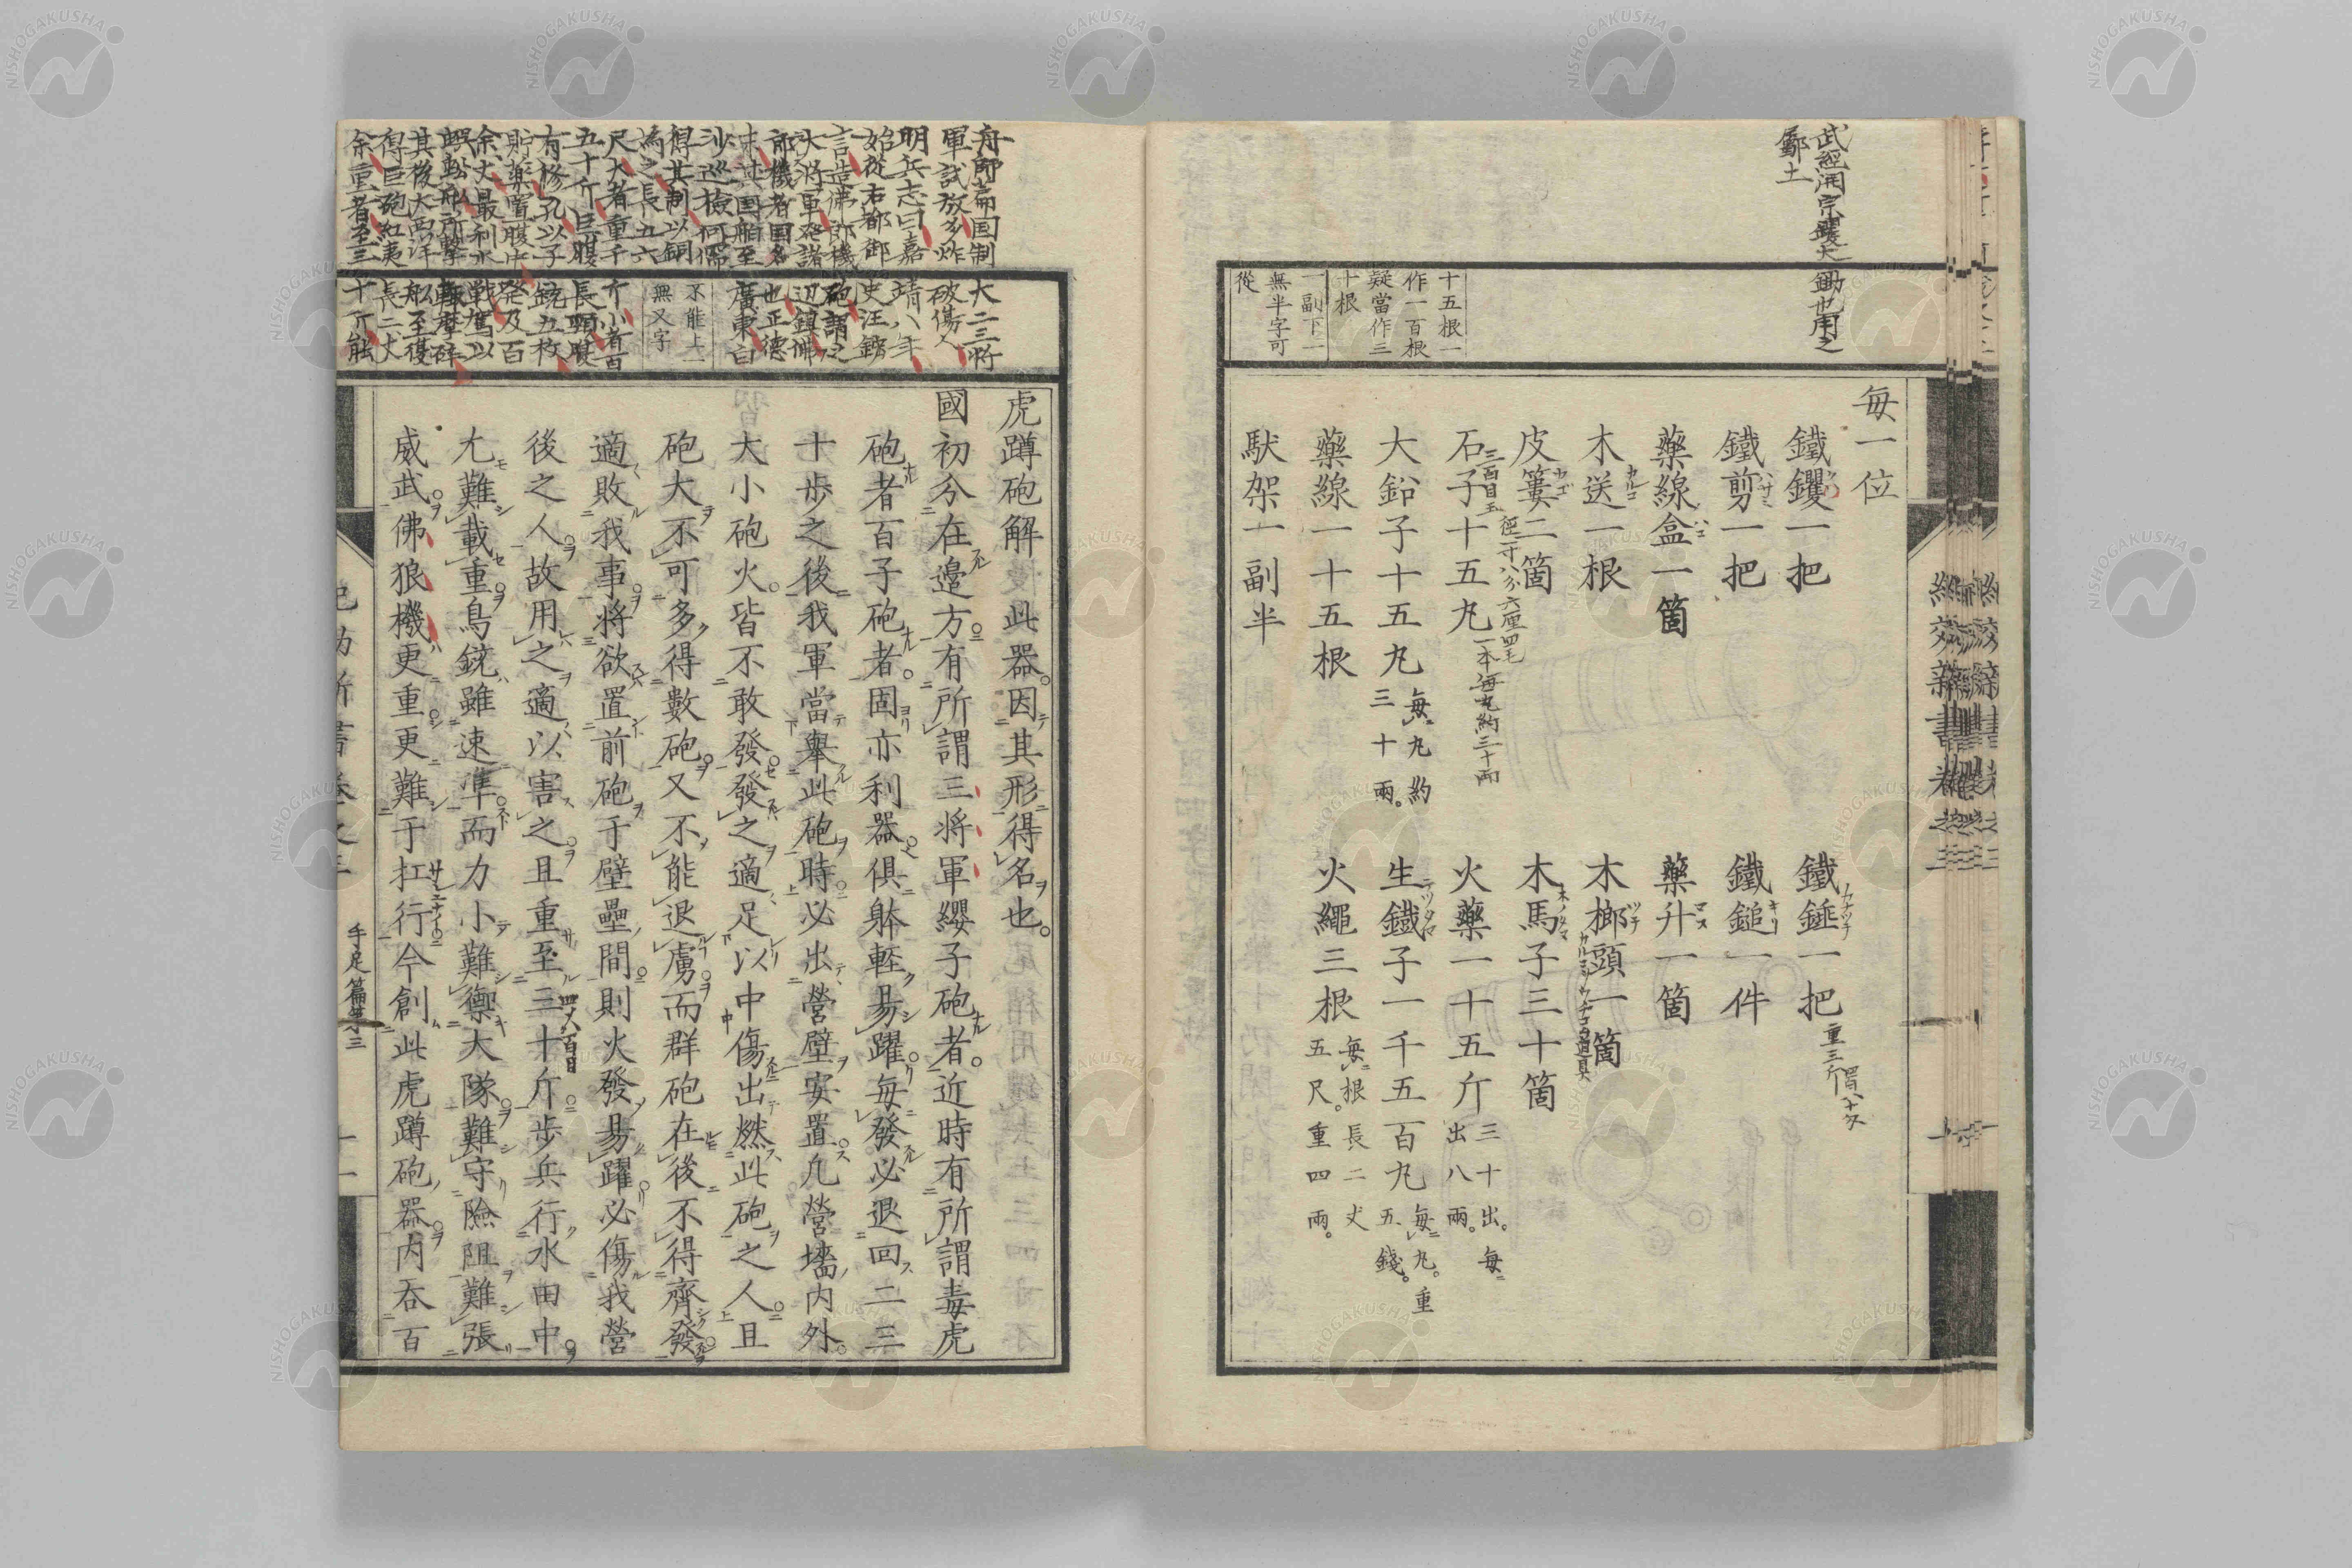 武經開宗钁大鋤也用之
斸土
十五根一
作一百根
疑當作三
十根
一副下一
無半字可
從
每一位
鐵钁一把
鐵錘一把 重三斤
鐵剪一把
鐵鎚一件
藥線盒一箇
藥升一箇
木送一根
木榔頭一箇
皮簍二箇
木馬子三十箇
石子十五丸 一本每丸約三十兩
三百目玉 徑二寸八分六厘四毛
火藥一十五斤 三十出每出八兩
大鉛子十五丸 每丸約三十兩
生鐵子一千五百丸 每丸重五錢
藥線一十五根
火繩三根 每根長二丈五尺重四兩
馱架一副半
舟師篇国制大二三将
軍試放多炸破傷人
明兵志曰嘉靖八年
始從右都御史汪鋐
言造佛郎機砲謂之
大将軍発諸辺鎮佛
郎機者国名也正德
末其国舶至廣東白
沙巡檢何儒
得其制以銅
為之長五六
不能上一
無又字
尺大者重千斤小者百
五十斤巨腹長頸腹
有修孔以子銃五枚
貯薬置腹中発及百
余丈最利水戰駕以
蜈蚣船所擊輒靡碎
其後大西洋船至復
得巨砲紅夷長二丈
余重者至三十斤能
虎蹲砲解此器因其形得名也
國初分在邊方有所謂三将軍纓子砲者近時有所謂毒虎
砲者百子砲者固亦利器俱躰軽易躍每發必退回二三
十歩之後我軍當舉此砲時必出營壁安置凢營墻内外
大小砲火皆不敢發發之適足以中傷出燃此砲之人且
砲大不可多得數砲又不能退虜而群砲在後不得齊發
適敗我事将欲置前砲于壁壘間則火發易躍必傷我營
後之人故用之適以害之且重至三十斤歩兵行水田中
尤難載重鳥銃雖速準而力小難禦大隊難守險阻難張
威武佛狼機更重更難于扛行今創此虎蹲砲器内吞百
手足篇第三